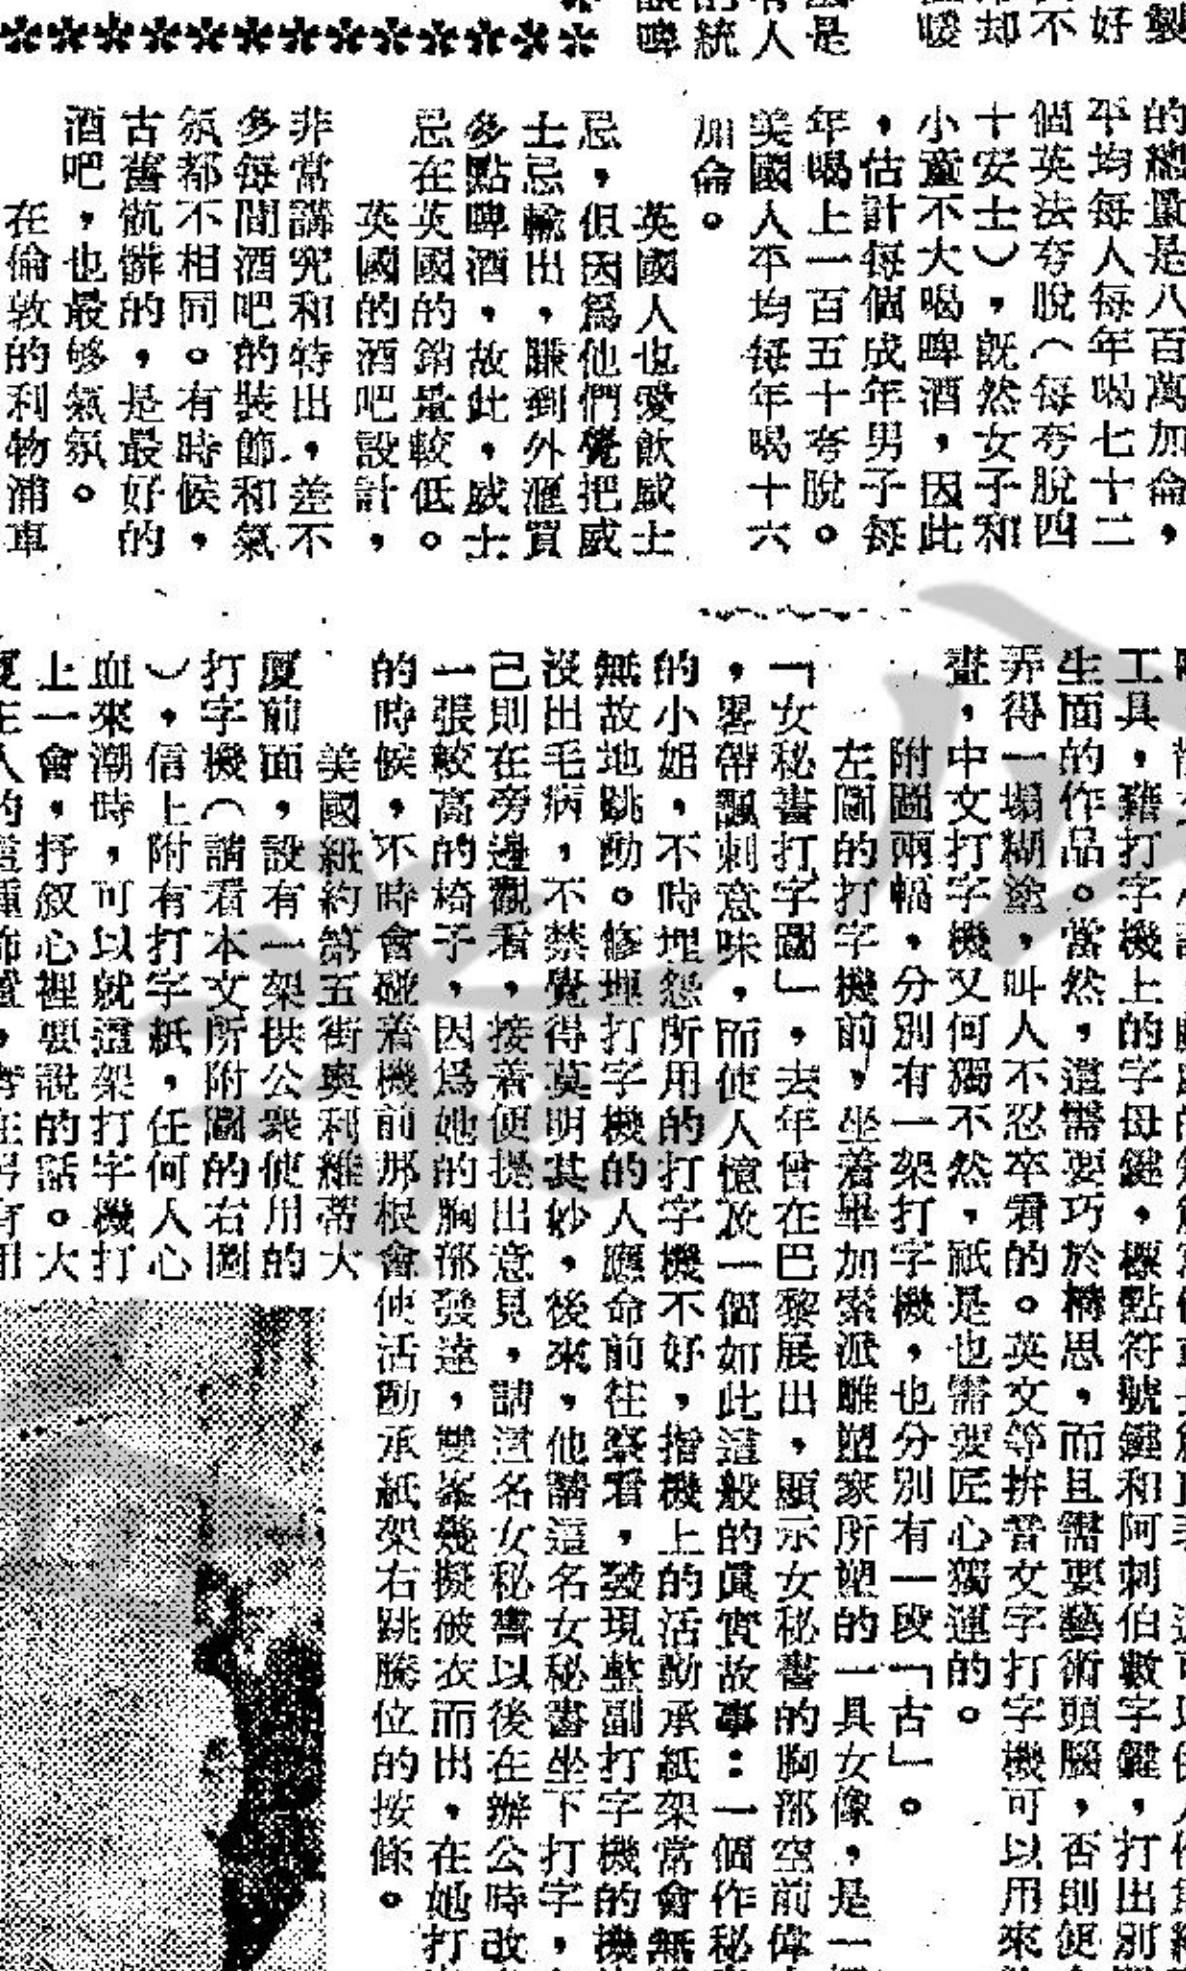 製
好
不
却
暖
是
人
統
啤
的總量是八百萬加侖，
平均每人每年喝七十二
個英法夸脫（每夸脫四
十安士），既然女子和
小童不大喝啤酒，因此
，估計每個成年男子每
年喝上一百五十夸脫。
美國人平均每年喝十六
加侖。
英國人也愛飲威士
忌，但因為他們覺把威
士忌輸出，賺到外滙買
多點啤酒，故此，威士
忌在英國的銷量較低。
英國的酒吧設計，
非常講究和特出，差不
多每間酒吧的裝飾和氣
氛都不相同。有時候，
古舊骯髒的，是最好的
酒吧，也最够氣氛。
在倫敦的利物浦車
工具，藉打字機上的字母鍵，標點符號鍵和阿刺伯數字鍵，打出別
生面的作品。當然，這需要巧於構思，而且需要藝術頭腦，否則便
弄得一塌糊塗，叫人不忍卒看的。英文等拼音文字打字機可以用來
畫，中文打字機又何獨不然，祇是也需要匠心獨運的。
附圖兩幅，分別有一架打字機，也分別有一段「古」。
左圖的打字機前，坐着畢加索派雕塑家所塑的一具女像，是一
「女秘書打字圖」，去年曾在巴黎展出，顯示女秘書的胸部空前偉
，畧帶諷刺意味，而使人憶及一個如此這般的眞實故事：一個作秘
的小姐，不時埋怨所用的打字機不好，指機上的活動承紙架常會無
無故地跳動。修理打字機的人應命前往察看，發現整副打字機的機
沒出毛病，不禁覺得莫明其妙，後來，他請這名女秘書坐下打字，
己則在旁邊觀看，接着便提出意見，請這名女秘書以後在辦公時改
一張較高的椅子，因爲她的胸部發達，雙峯幾擬破衣而出，在她打
的時候，不時會碰着機前那根會使活動承紙架右跳騰位的按條。
美國紐約第五街奧利維蒂大
厦前面，設有一架供公衆使用的
打字機（請看本文所附圖的右圖
），信上附有打字紙，任何人心
血來潮時，可以就這架打字機打
上一會，抒叙心裡要說的話。大